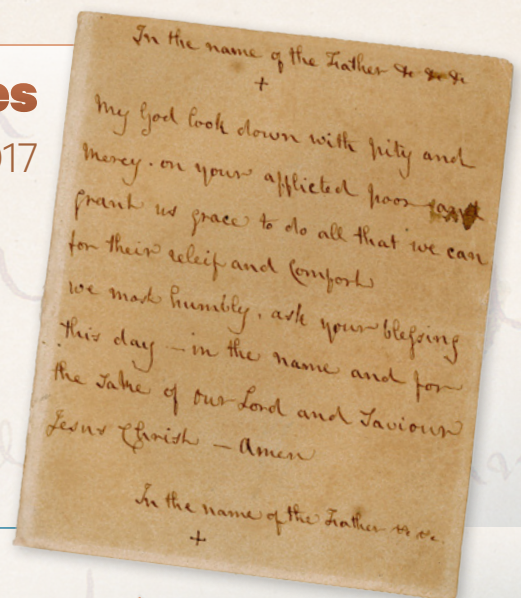 es
017
In the name of the Father &c &c &c
+
My God look down with pity and
Mercy. on your afflicted poor and
grant us grace to do all that we can
for their releif and Comfort
we most humbly, ask your blessing
this day — in the name and for
the Sake of our Lord and Saviour
Jesus Christ — Amen
In the name of the Father &c &c.
+